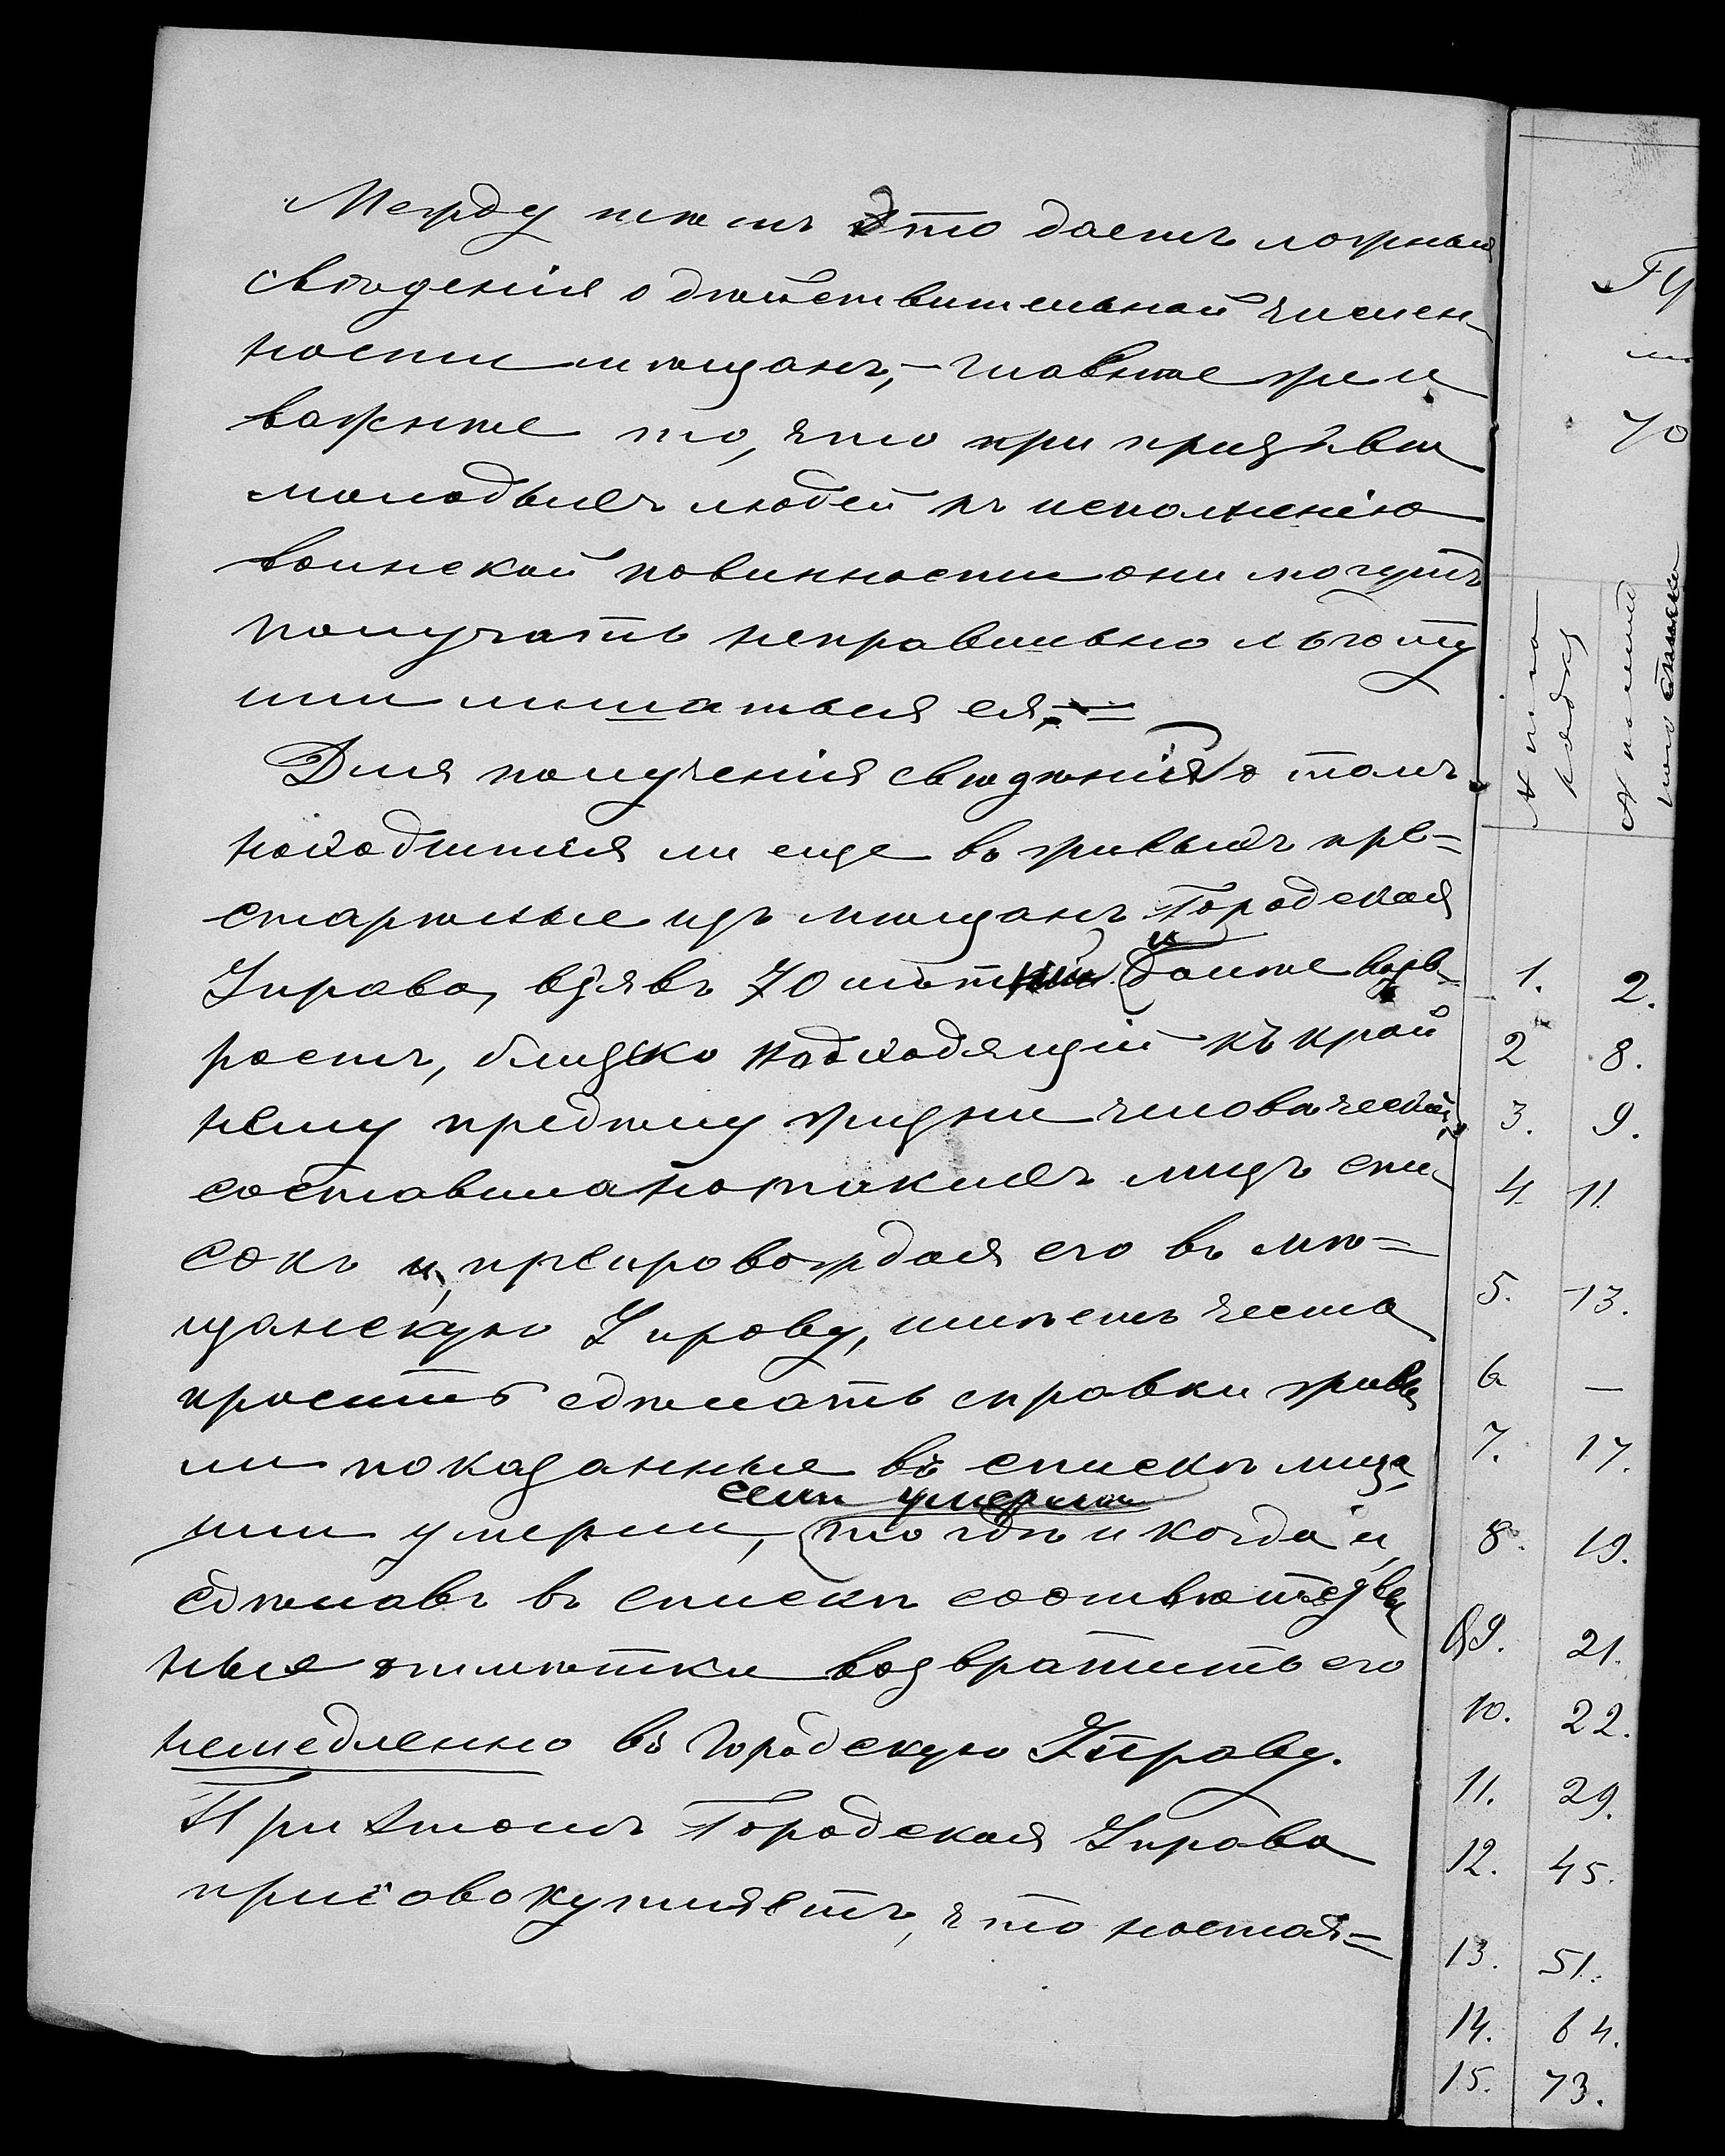 Между тѣмъ это даетъ ложныя
свѣденія о дѣйствительной числен-
ности мѣщанъ, – главнѣе же и
важнѣе то, что при призывѣ
молодыхъ людей къ исполненію
воинской повинности они могутъ
получать неправильно льготу
или лишаться ея. =
Для полученія свѣдѣнія о томъ
находятся ли еще въ живыхъ пре=
старѣлые изъ мѣщанъ Городская
Управа, взявъ 70 лѣтній и болѣе воз-
растъ, близко подходящій къ край
нему предѣлу жизни человѣческой,
составила о такихъ лицъ спи
сокъ и, препровождая его въ мѣ=
щанскую Управу, имѣетъ честь
просить сдѣлать справки живы
ли показанные въ спискѣ лица
или умерли, если умерли
то гдѣ и когда и,
сдѣлавъ въ спискѣ соотвѣтствен
ныя отмѣтки возвратить его
немедленно въ Городскую Управу.
При этомъ Городская Управа
присовокупляетъ, что настоя=
70
№ по по
рядку
1. 2.
2 8.
3. 9.
4. 11.
5. 13.
6 —
7. 17.
8. 19.
9. 21.
10. 22.
11. 29.
12. 45.
13. 51.
14. 64.
15. 73.